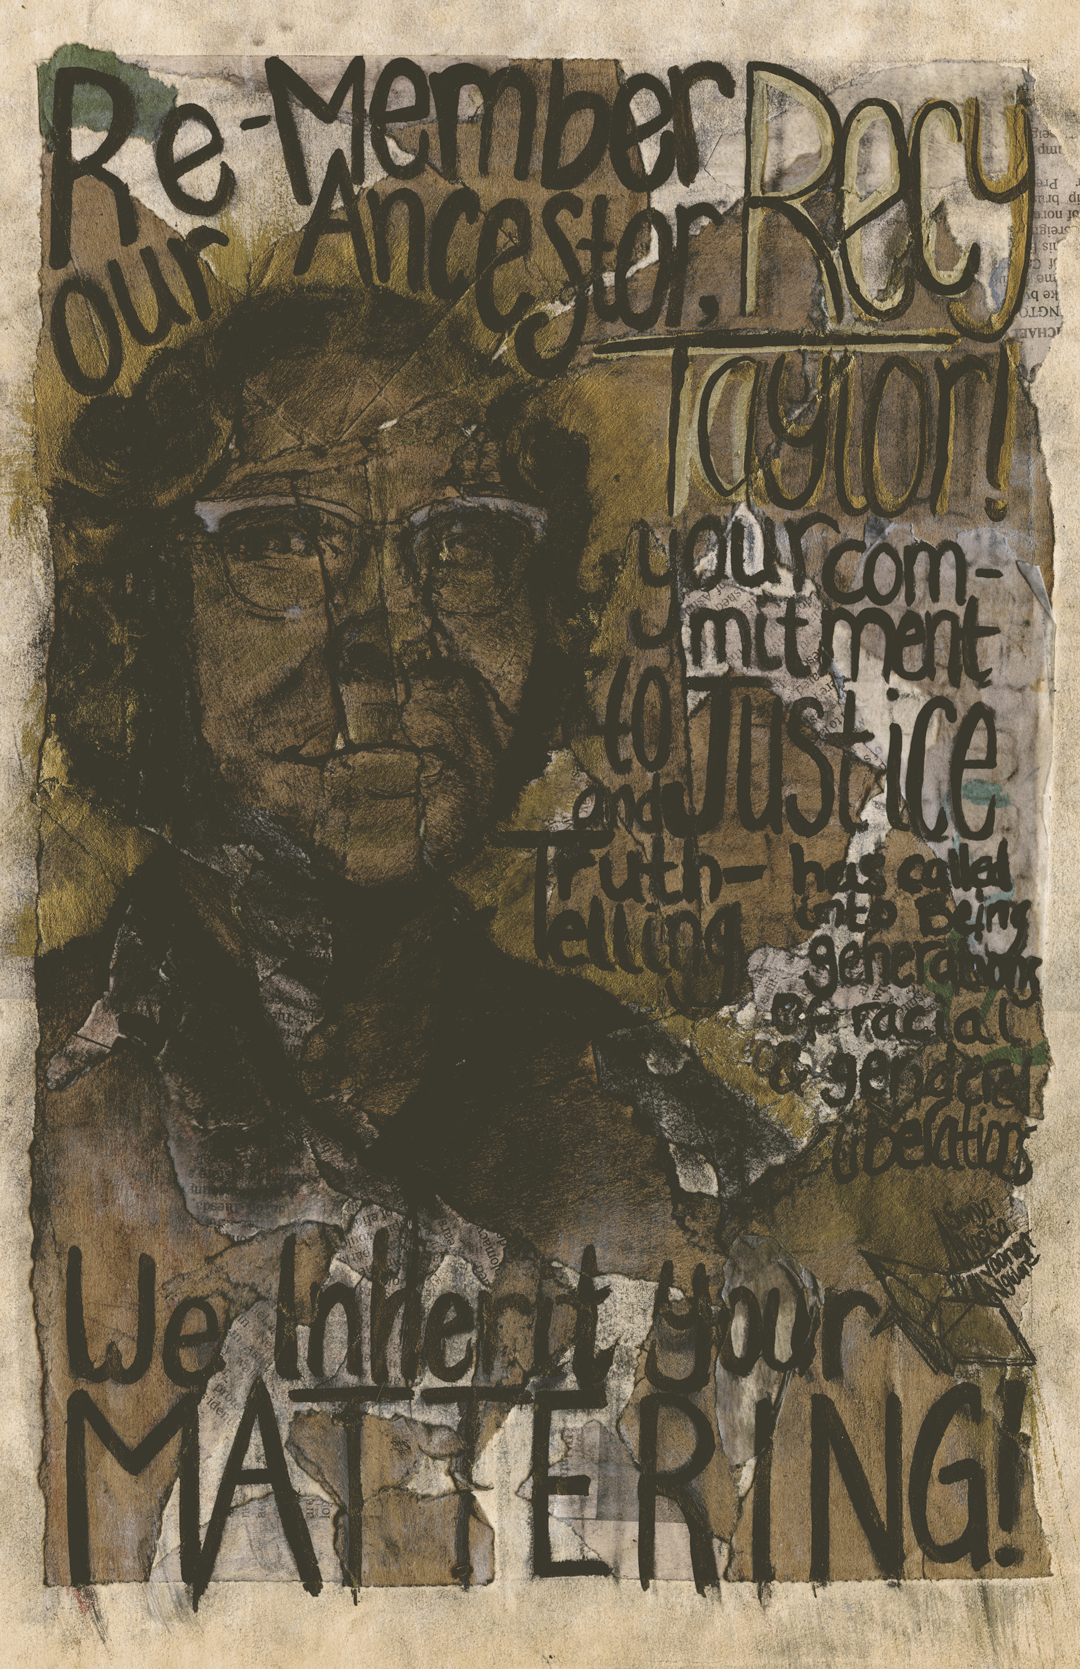 Re-Member Recy
our Ancestor,
Taylor!
your com-
mitment
to Justice
and
Truth-
Telling
has called
into Being
generations
of racial
& gendered
liberations
We Inherit your
MATTERING!